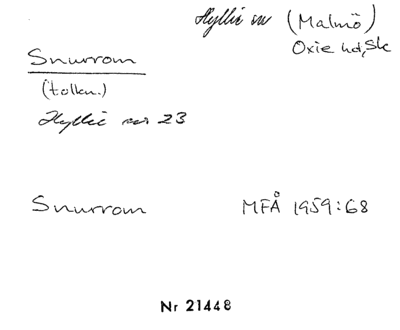 Hyllie sn (Malmö)
Oxie hd, Sk
Snurrom
(tolkn.)
Hyllie nr 23
Snurrom MFÅ 1959:68
Nr 21448